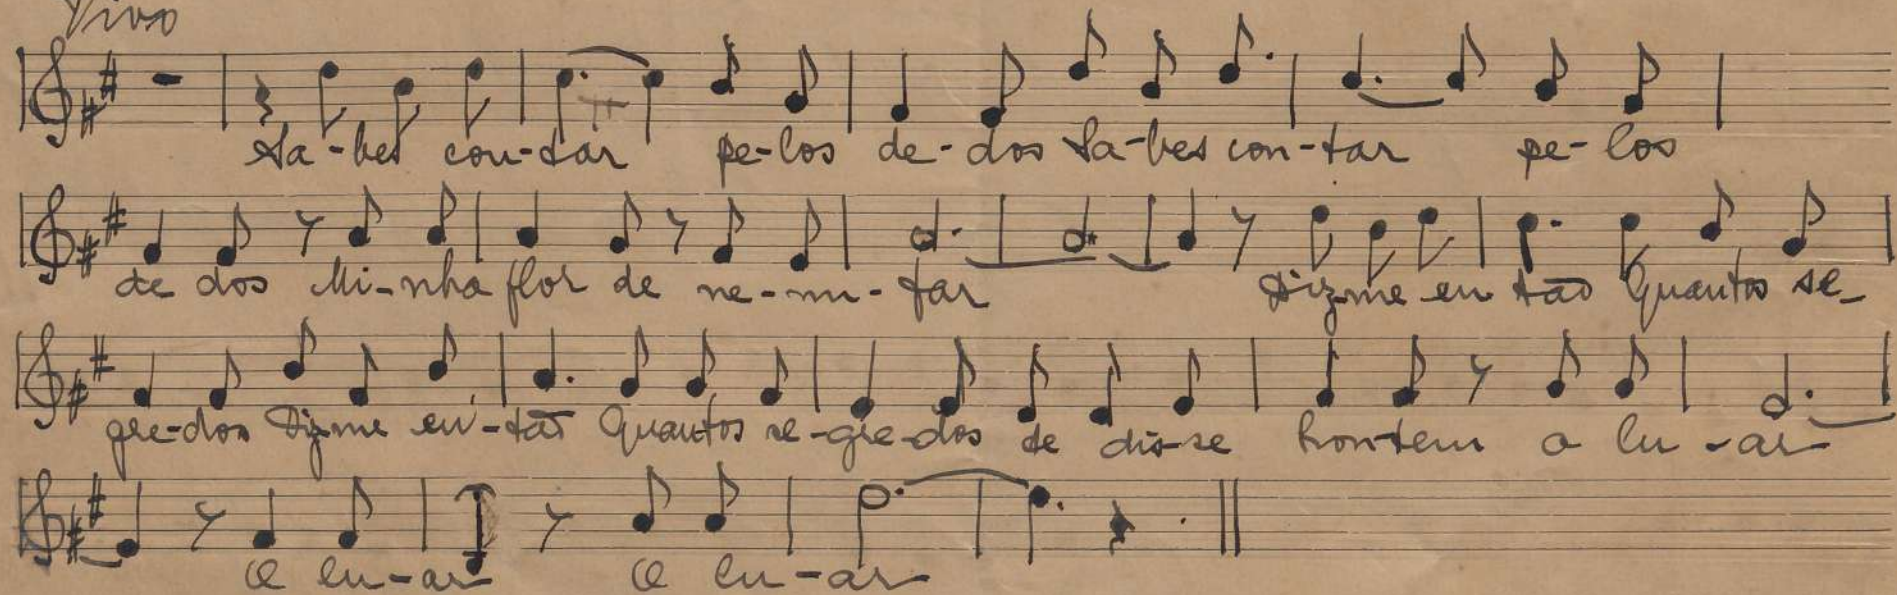 Vivo
Sa-bes con-tar pe-los de-dos Sa-bes con-tar pe-los
de dos Mi-nha flor de ne-nu-far Diz-me en tão Quantos se-
gre-dos Diz-me en-tão Quantos se-gre-dos te dis-se hontem o lu-ar
O lu-ar O lu-ar